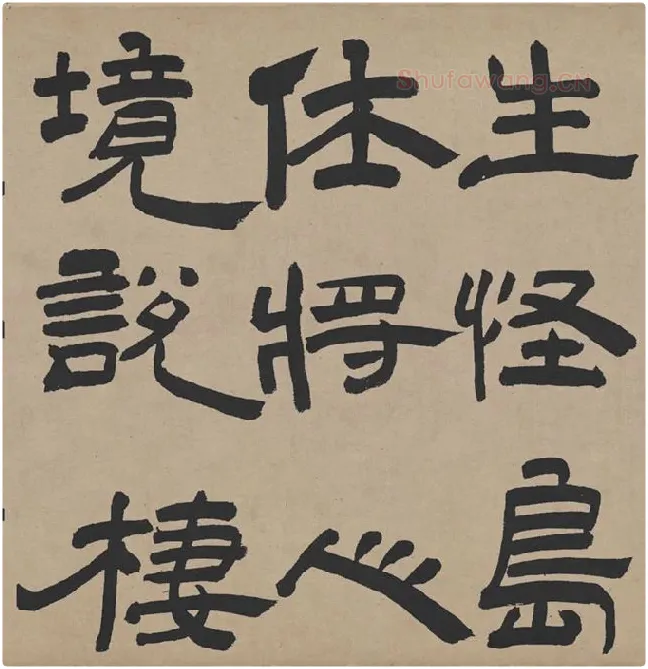 Shufawang.CN
生怪島
休將心
境說棲